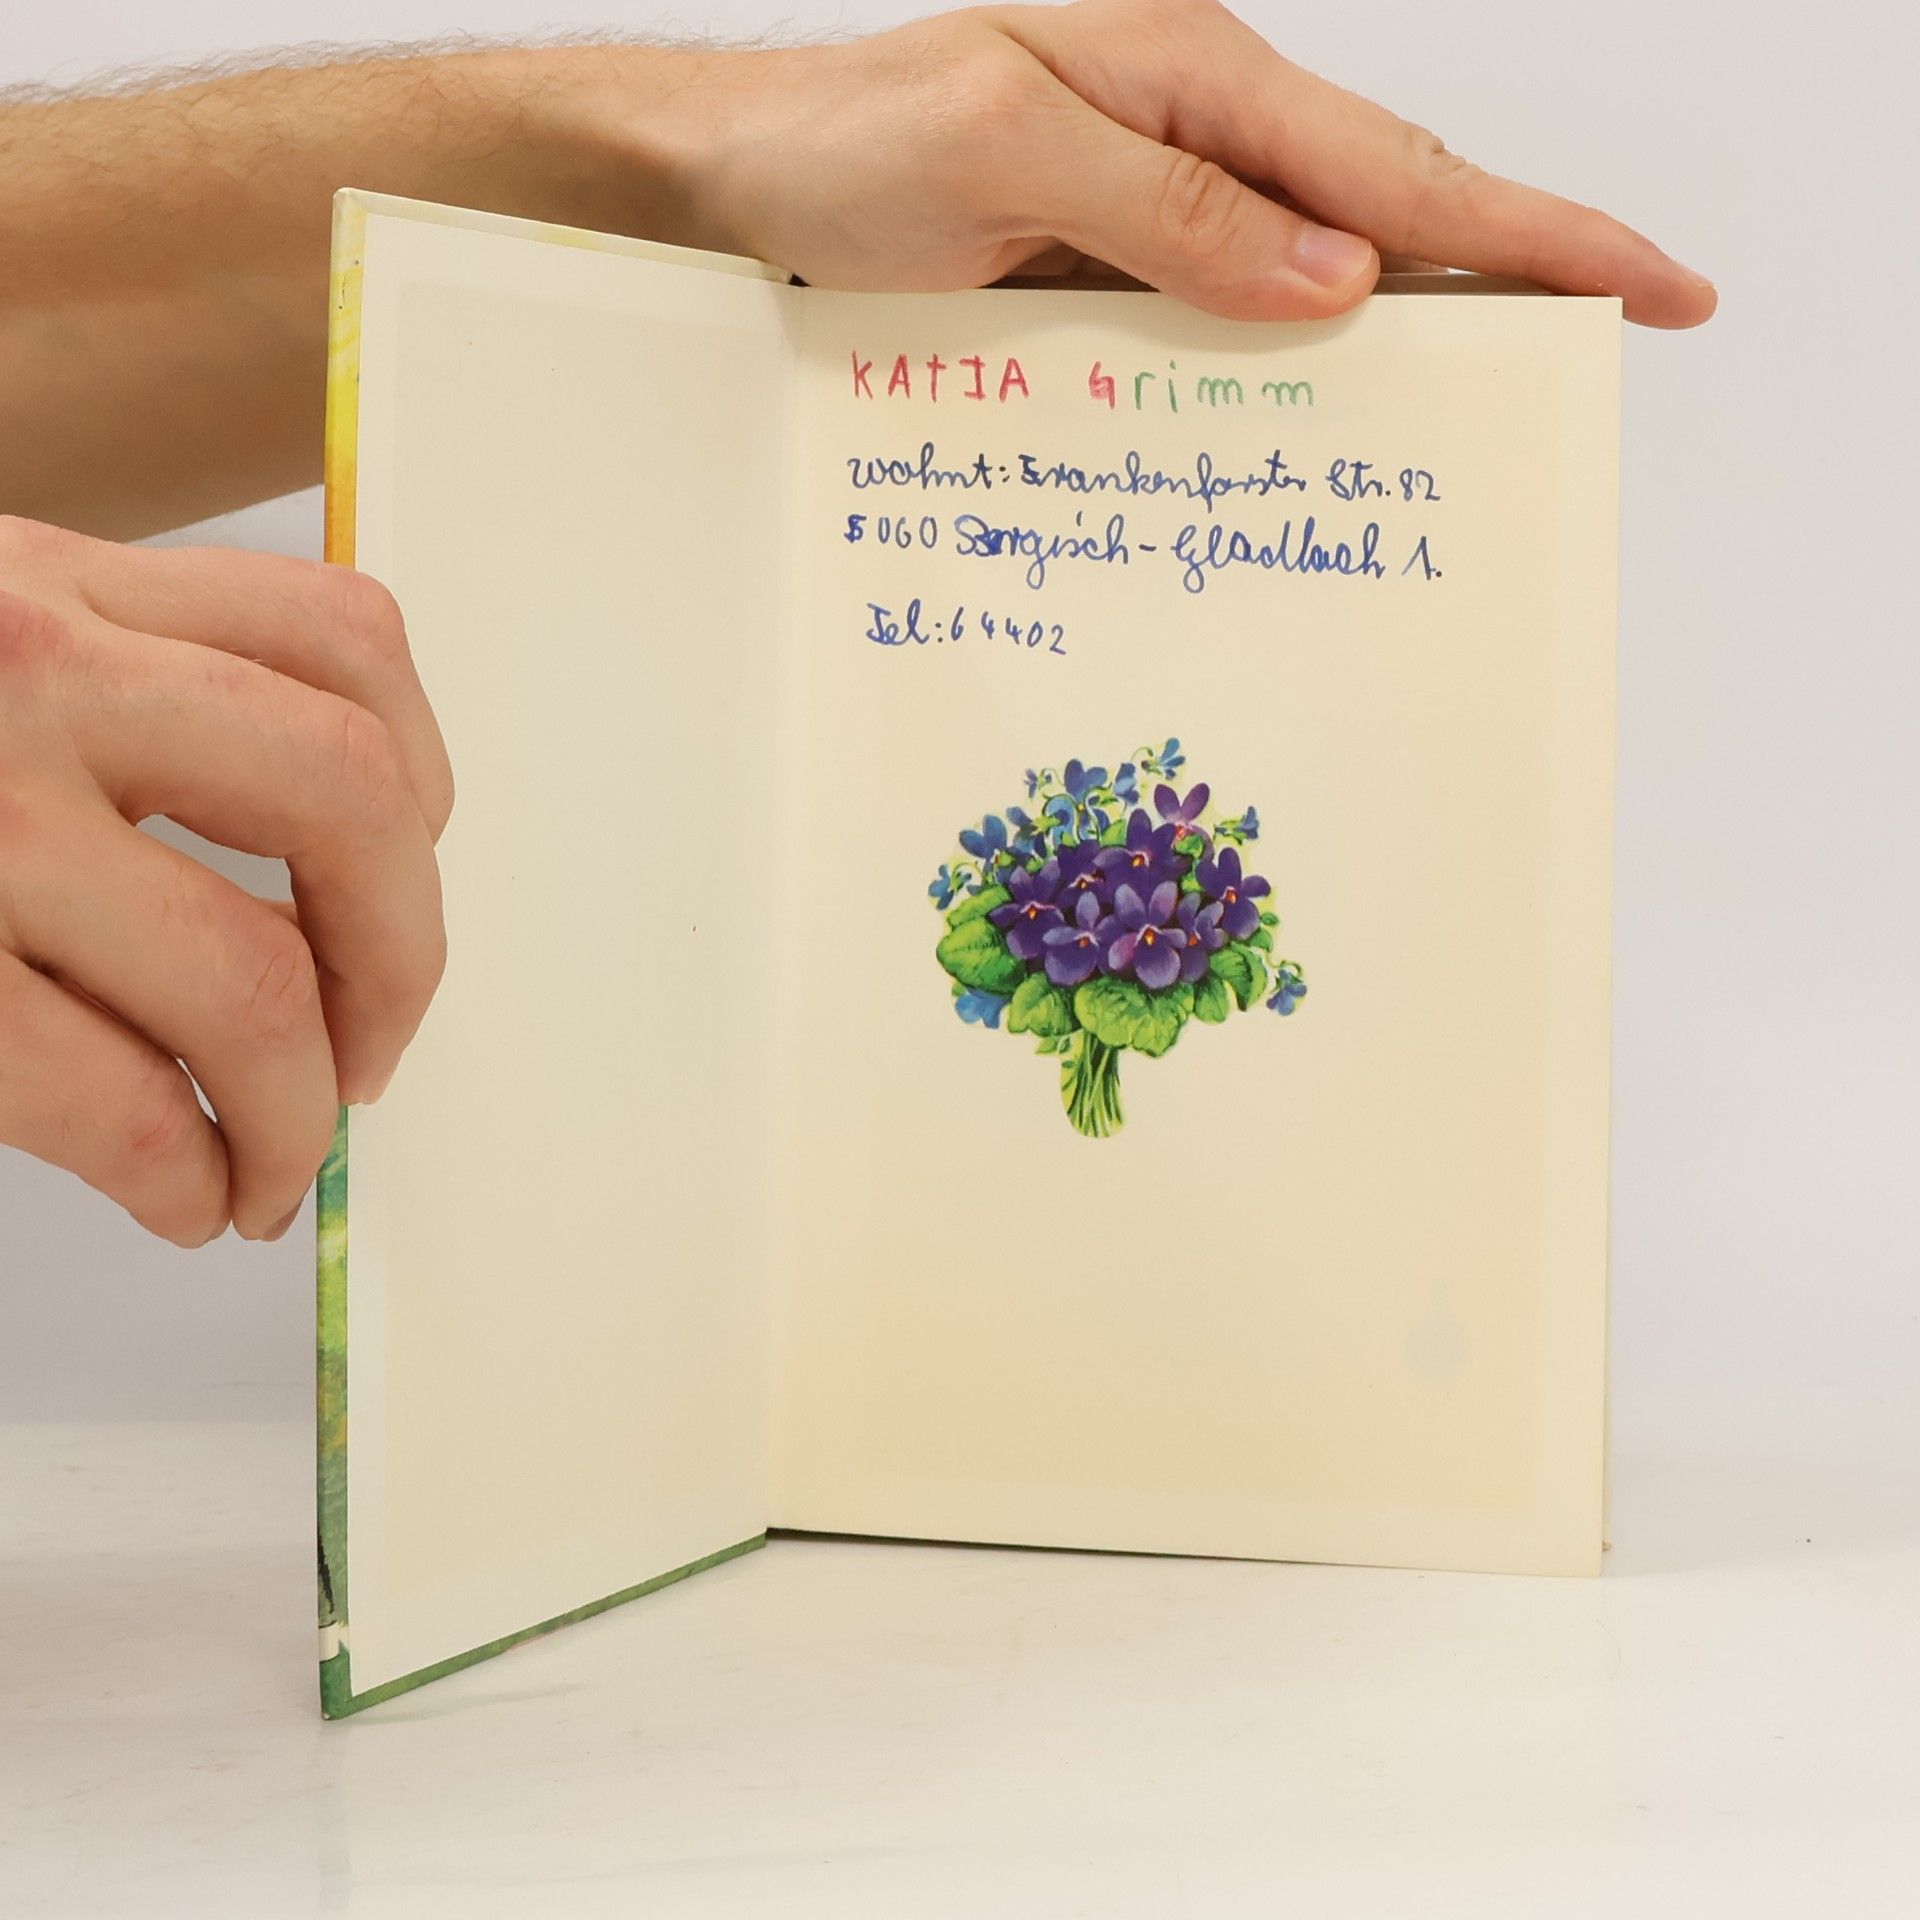 KAtJA Grimm
wohnt: Frankenforster Str. 82
5060 Bergisch-Gladbach 1.
Tel: 64402